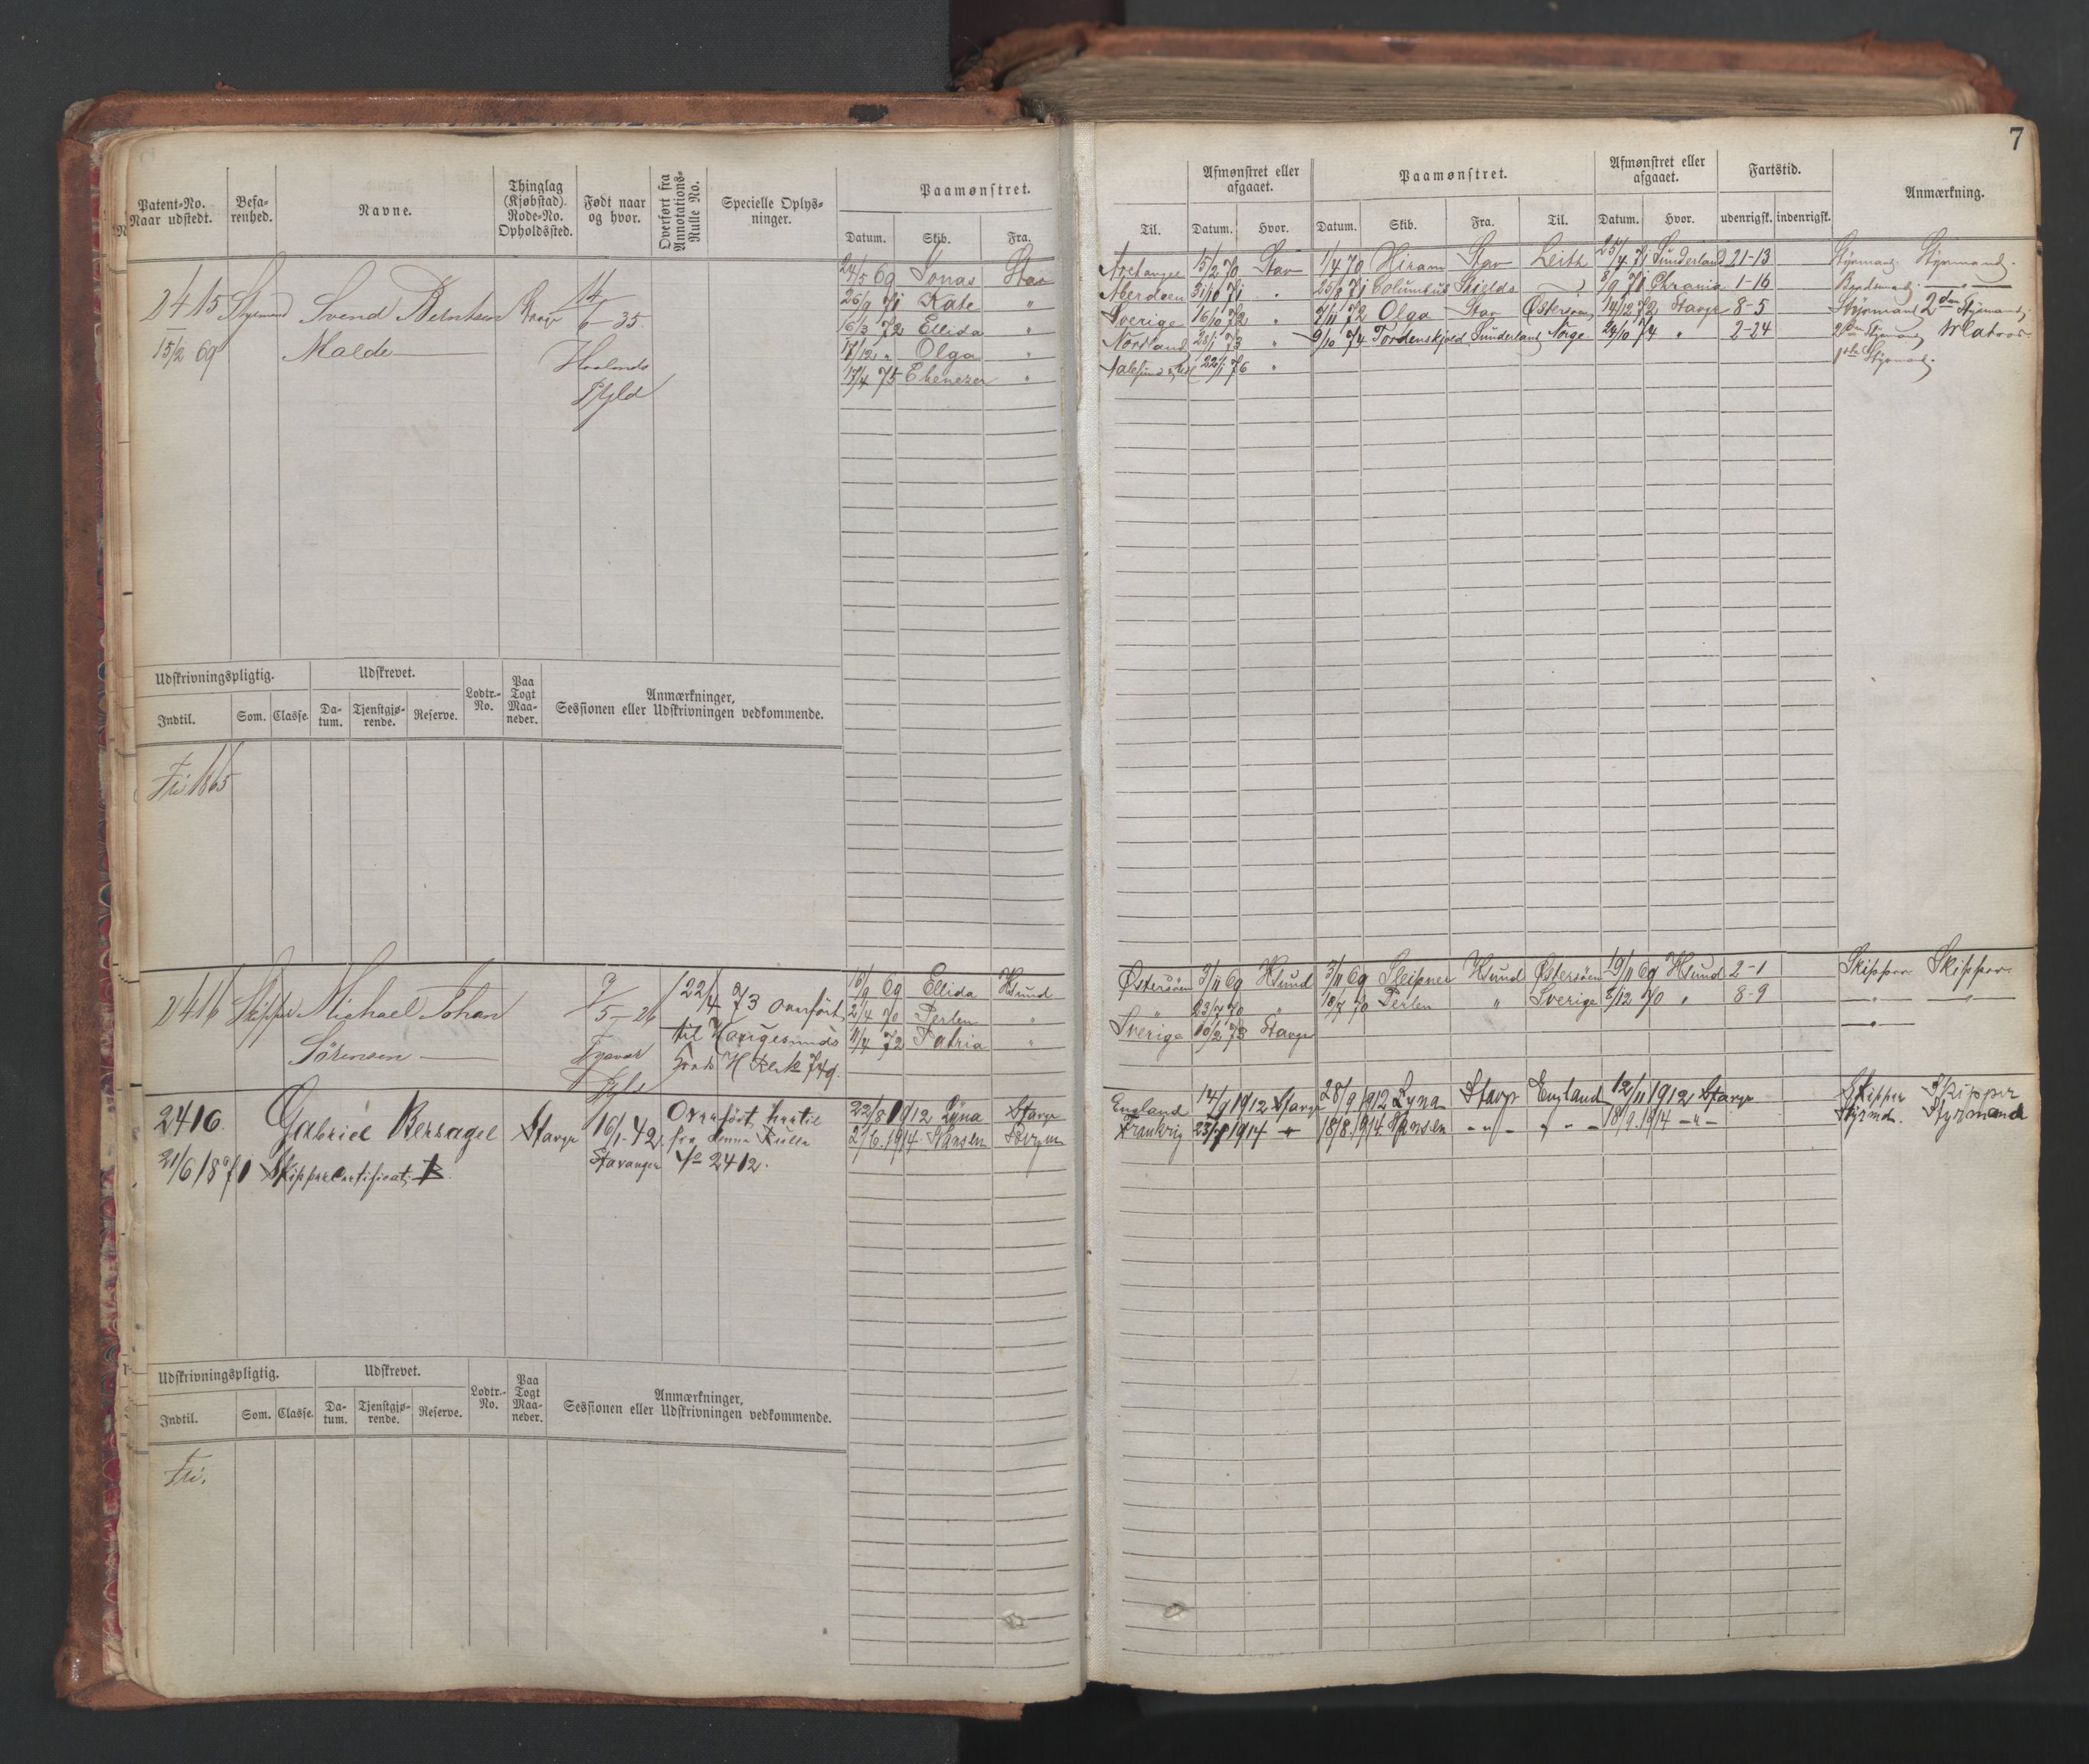 7
Patent-No. Naar udstedt.
Befarenhed.
Navne.
Thinglag (Kjøbstad). Rode-No. Opholdssted.
Født naar og hvor.
Overført fra Annotations-Rulle No.
Specielle Oplysninger.
Paamønstret.
Datum. Skib. Fra.
Til.
Afmønstret eller afgaaet.
Datum. Hvor.
Paamønstret.
Datum. Skib. Fra. Til.
Afmønstret eller afgaaet.
Datum. Hvor.
Fartstid.
udenrigsk. indenrigsk.
Anmærkning.
2415 Styrmand Svend Berntsen
15/2 69 Malde
14/6 35
Haalands
Pgld
24/5 69 Jonas Stav Archangel 15/2 70 Stav 1/4 70 Hiram Stav Leith 25/4 71 Sunderland 21-13 Styrmand. Styrmand.
26/9 71 Kate " Aberdeen 31/10 71 " 25/8 71 Columbus Shields 9/9 71 Chrania 1-16
16/3 72 Ellida " Sverige 16/10 72 " 9/11 72 Olga Stav Østersøen 14/12 72 Stavgr 8-5 Styrmand 2den Styrmand,
17/12 " Olga " Nordland 28/1 73 " 9/10 74 Tordenskjold Sunderland Norge 24/10 74 " 2-24 2den Styrmand Matros.
17/4 75 Ebenezer " 22/1 76 " 1ste Styrmand.
Udskrivningspligtig.
Udskrevet.
Indtil. Som. Classe. Datum. Tjenstgjørende. Reserve.
Lodtr.-No.
Paa Togt Maaneder.
Anmærkninger, Sessionen eller Udskrivningen vedkommende.
Fri 1865
2416 Skipper Michael Johan
Sørensen
9/5-26
Tysvær
Pgld
22/4 73 overført
til Haugesunds
Krds H Rk 749.
16/9 69 Ellida Hsund Østersøen 3/11 69 Hsund 3/11 69 Sleipner Hsund Østersøen 19/11 69 Hsund 2-1 Skipper Skipper
2/4 70 Perlen " " 23/7 70 " 18/7 70 Perlen " Sverige 8/12 70 " 8-9 -"- -"-
11/4 72 Patria " Sverige 10/2 73 Stavgr -"-
2416. Gabriel Bersagel Stavgr 16/1-42. Stavanger
21/6 1871 Skippercertificat B.
Overført hertil
fra denne Rulle
No 2412.
22/8 1912 Lyna Stavgr England 14/9 1912 Stavgr 28/9 1912 Lyna Stavgr England 12/11 1912 Stavgr Skipper Skipper
2/6. 1914. Hansen Bergen Frankrig 23/7 1914 18/8. 1914. Hansen -"- -"- 18/9. 1914 -"- Styrmd. Styrmand
Udskrivningspligtig.
Udskrevet.
Indtil. Som. Classe. Datum. Tjenstgjørende. Reserve.
Lodtr.-No.
Paa Togt Maaneder.
Anmærkninger, Sessionen eller Udskrivningen vedkommende.
Fri.